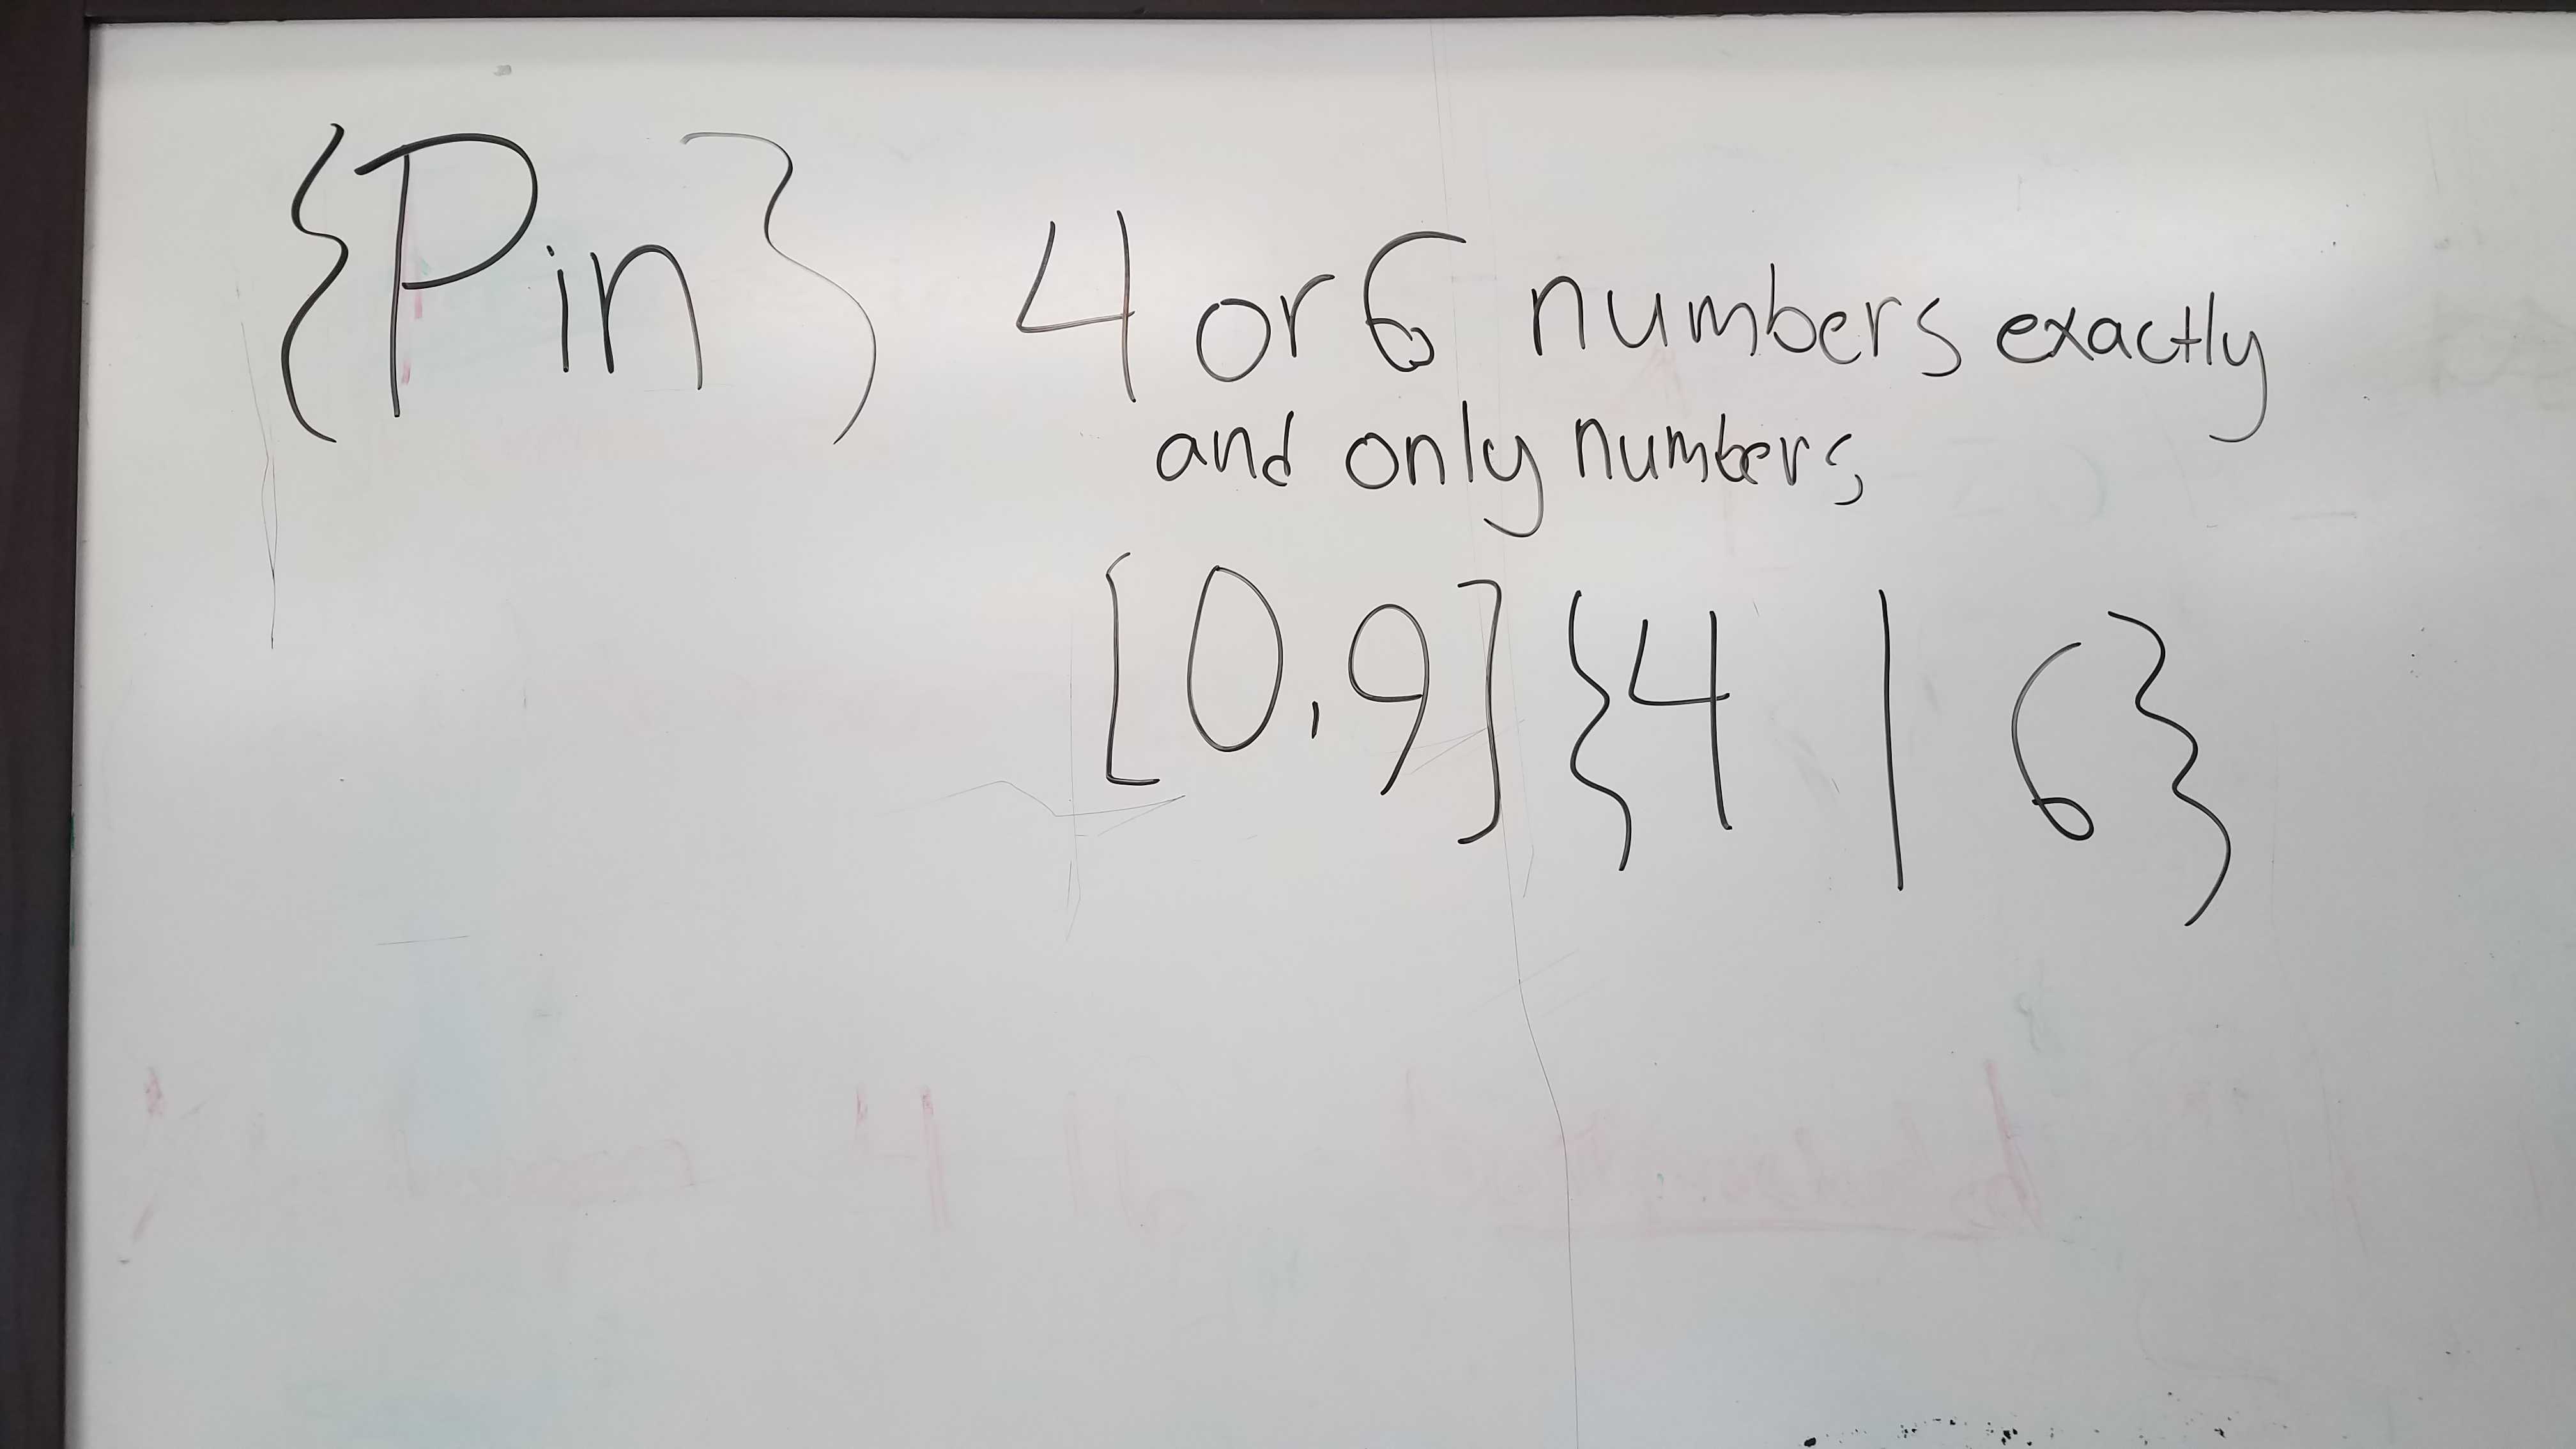 {Pin} 4 or 6 numbers exactly
and only numbers
[0,9]{4 | 6}